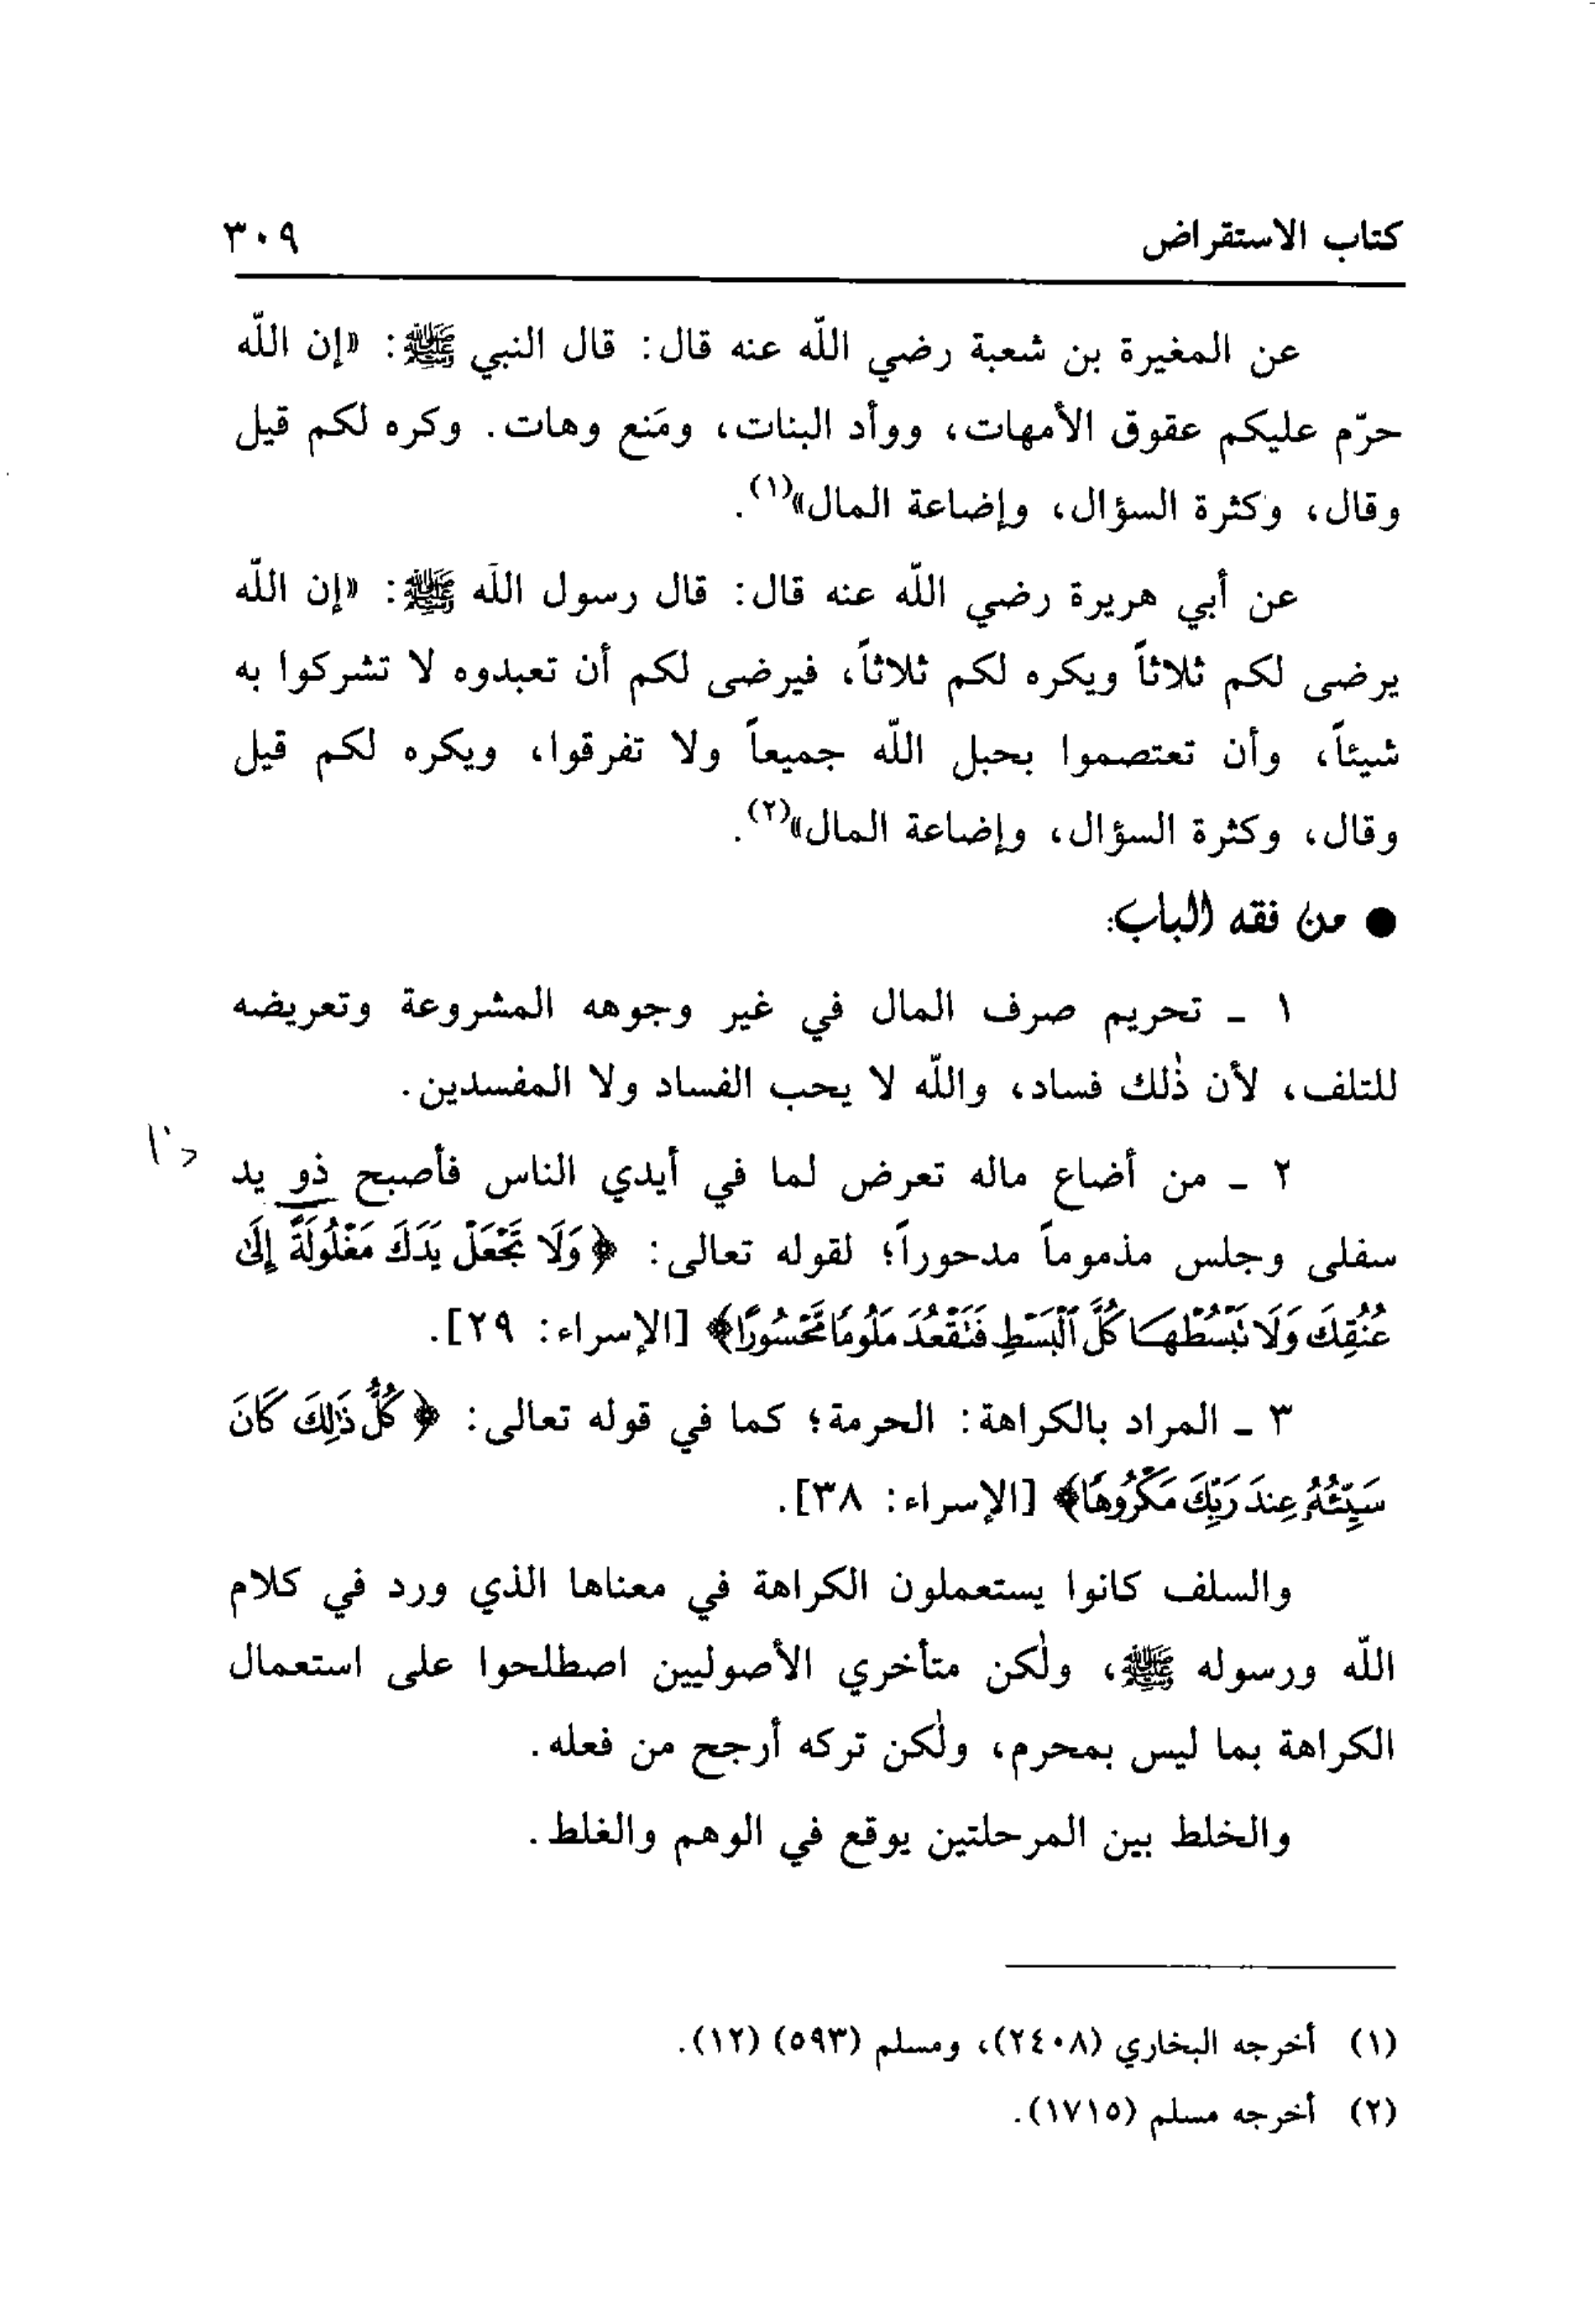 كتاب الاستقراض ٣٠٩
عن المغيرة بن شعبة رضي اللّه عنه قال: قال النبي ﷺ: «إن اللّه
حرّم عليكم عقوق الأمهات، ووأد البنات، ومَنع وهات. وكره لكم قيل
وقال، وكثرة السؤال، وإضاعة المال»(١).
عن أبي هريرة رضي اللّه عنه قال: قال رسول اللَه ﷺ: «إن اللّه
يرضى لكم ثلاثاً ويكره لكم ثلاثاً، فيرضى لكم أن تعبدوه لا تشركوا به
شيئاً، وأن تعتصموا بحبل اللّه جميعاً ولا تفرقوا، ويكره لكم قيل
وقال، وكثرة السؤال، وإضاعة المال»(٢).
● من فقه الباب:
١ - تحريم صرف المال في غير وجوهه المشروعة وتعريضه
للتلف، لأن ذٰلك فساد، واللّه لا يحب الفساد ولا المفسدين.
٢ - من أضاع ماله تعرض لما في أيدي الناس فأصبح ذو يد
سفلى وجلس مذموماً مدحوراً؛ لقوله تعالى: ﴿وَلَا تَجْعَلْ يَدَكَ مَغْلُولَةً إِلَىٰ
عُنُقِكَ وَلَا تَبْسُطْهَا كُلَّ ٱلْبَسْطِ فَتَقْعُدَ مَلُومًا مَّحْسُورًا﴾ [الإسراء: ٢٩].
٣ - المراد بالكراهة: الحرمة؛ كما في قوله تعالى: ﴿كُلُّ ذَٰلِكَ كَانَ
سَيِّئُهُۥ عِندَ رَبِّكَ مَكْرُوهًا﴾ [الإسراء: ٣٨].
والسلف كانوا يستعملون الكراهة في معناها الذي ورد في كلام
اللّه ورسوله ﷺ، ولٰكن متأخري الأصوليين اصطلحوا على استعمال
الكراهة بما ليس بمحرم، ولٰكن تركه أرجح من فعله.
والخلط بين المرحلتين يوقع في الوهم والغلط.
(١) أخرجه البخاري (٢٤٠٨)، ومسلم (٥٩٣) (١٢).
(٢) أخرجه مسلم (١٧١٥).